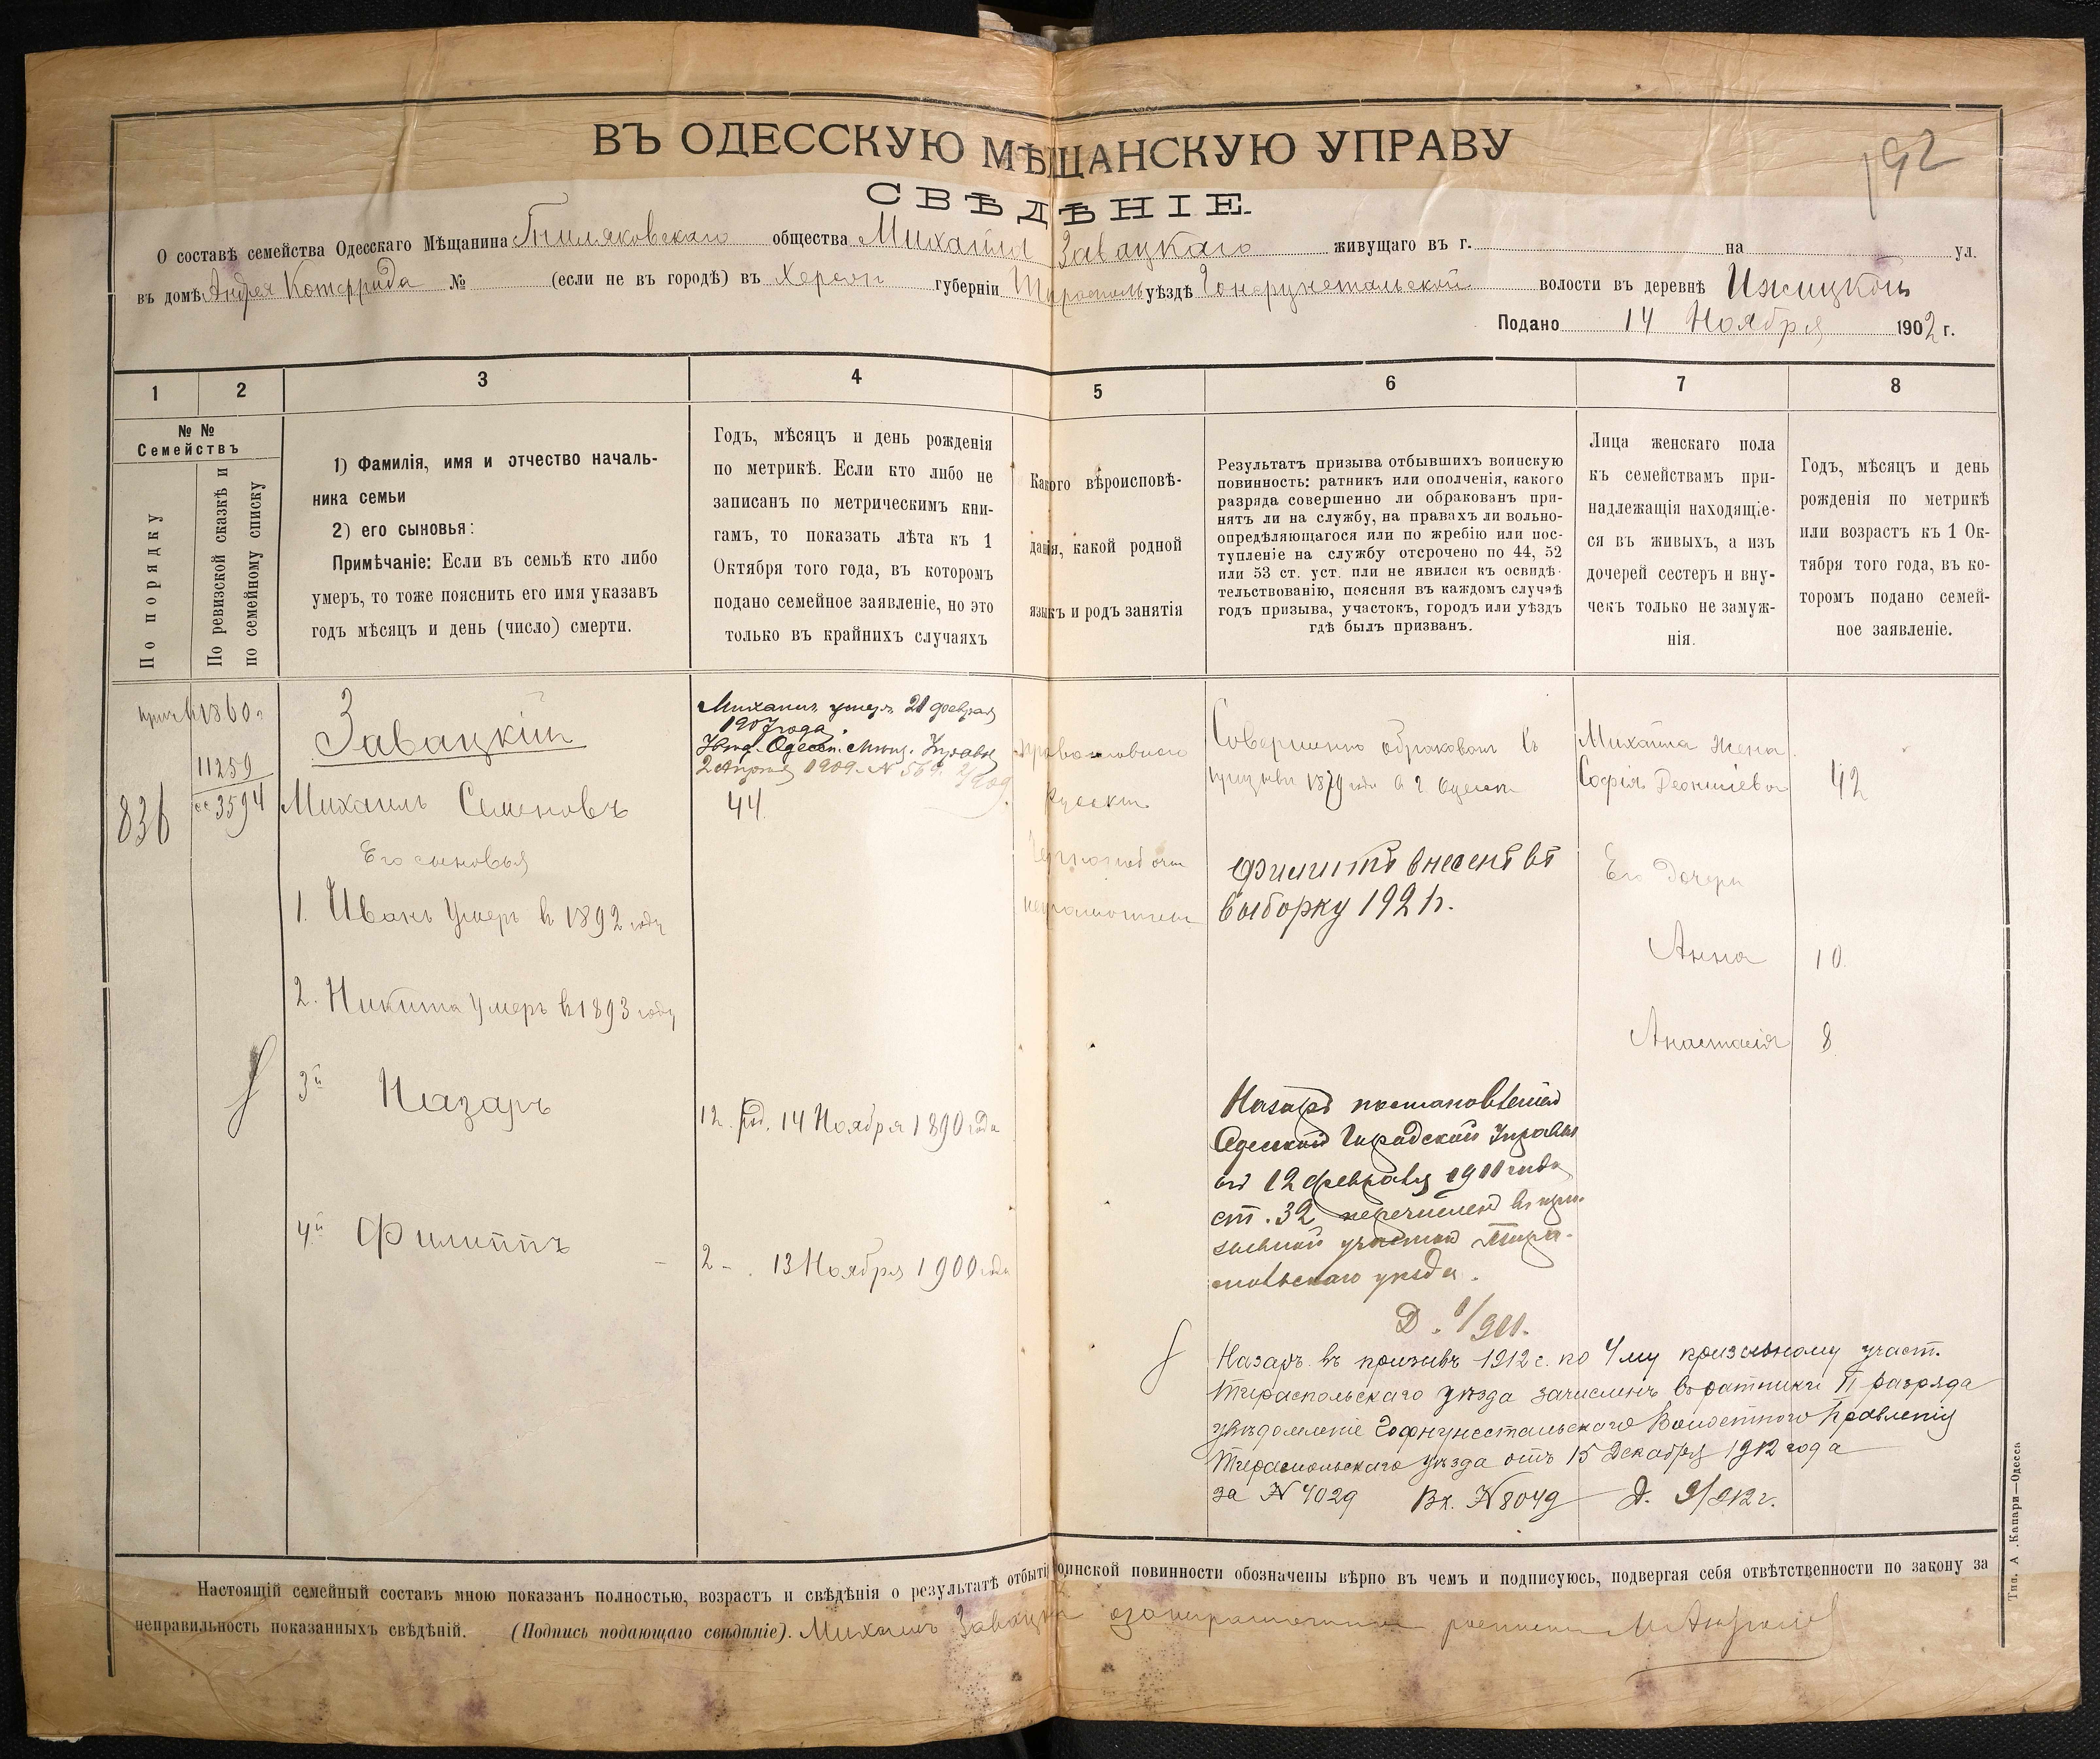 192
ВЪ ОДЕССКУЮ МѢЩАНСКУЮ УПРАВУ
СВѢДѢНІЕ.
О составѣ семейства Одесскаго Мѣщанина Гниляковскаго общества Михаила Завацкаго живущаго въ г. на ул.
въ домѣ Андрея № (если не въ городѣ) въ Херсон губерніи Тирасполь уѣздѣ волости въ деревнѣ
Подано 14 Ноября 1902 г.
1 2 3 4 5 6 7 8
№ №
Семействъ
По порядку
По ревизской сказкѣ и
по семейному списку
1) Фамилія, имя и отчество началь-
ника семьи
2) его сыновья:
Примѣчаніе: Если въ семьѣ кто либо
умеръ, то тоже пояснить его имя указавъ
годъ мѣсяцъ и день (число) смерти.
Годъ, мѣсяцъ и день рожденія
по метрикѣ. Если кто либо не
записанъ по метрическимъ кни-
гамъ, то показать лѣта къ 1
Октября того года, въ которомъ
подано семейное заявленіе, но это
только въ крайнихъ случаяхъ
Какого вѣроисповѣ-
данія, какой родной
языкъ и родъ занятія
Результатъ призыва отбывшихъ воинскую
повинность: ратникъ или ополченія, какого
разряда совершенно ли обракованъ при-
нятъ ли на службу, на правахъ ли вольно-
опредѣляющагося или по жребію или пос-
тупленіе на службу отсрочено по 44, 52
или 53 ст. уст. или не явился къ освидѣ-
тельствованію, поясняя въ каждомъ случаѣ
годъ призыва, участокъ, городъ или уѣздъ
гдѣ былъ призванъ.
Лица женскаго пола
къ семействамъ при-
надлежащія находящіе-
ся въ живыхъ, а изъ
дочерей сестеръ и вну-
чекъ только не замуж-
нія.
Годъ, мѣсяцъ и день
рожденія по метрикѣ
или возрастъ къ 1 Ок-
тября того года, въ ко-
торомъ подано семей-
ное заявленіе.
836
1860 г
11259
3594
Завацкій
Михаилъ Семеновъ
Его сыновья
1. Иванъ Умеръ в 1892 году
2. Никита Умеръ в 1893 году
3й Назаръ
4й Филиппъ
Михаилъ умеръ 21 февраля
1907 года.
Одесск. Мѣщ. Управы
2 Апрѣля 1909. N 569.
44
12. род. 14 Ноября 1890 года
2 - . 13 Ноября 1900 года
Православнаго
Русскій
Чернорабочій
неграмотный
Совершенно обракован въ
призывѣ 1879 года в г. Одессѣ
Филиппъ внесенъ въ
выборку 1921 г.
Назаръ постановленіем
Одесской Городской Управы
от 12 февраля 1911 года
ст. 32 перечислен въ при-
зывной участок Тира-
спольскаго уѣзда.
Назаръ въ призывъ 1912 г. по 4му призывному участ.
Тираспольскаго уѣзда зачисленъ въ ратники II разряда
увѣдомленіе Волостного Правленія
Тираспольскаго уѣзда отъ 15 Декабря 1912 года
за N 4029 Вх. N 8049 Д. 9/912 г.
Михаила Жена
Софія Леонтіева
42
Его Дочери
Анна
10.
Анастасія
8
Настоящій семейный составъ мною показанъ полностью, возрастъ и свѣдѣнія о результатѣ отбытія воинской повинности обозначены вѣрно въ чемъ и подписуюсь, подвергая себя отвѣтственности по закону за
неправильность показанныхъ свѣдѣній. (Подпись подающаго свѣдѣніе). Михаилъ Завацкій
Тип. А. Капари—Одесса